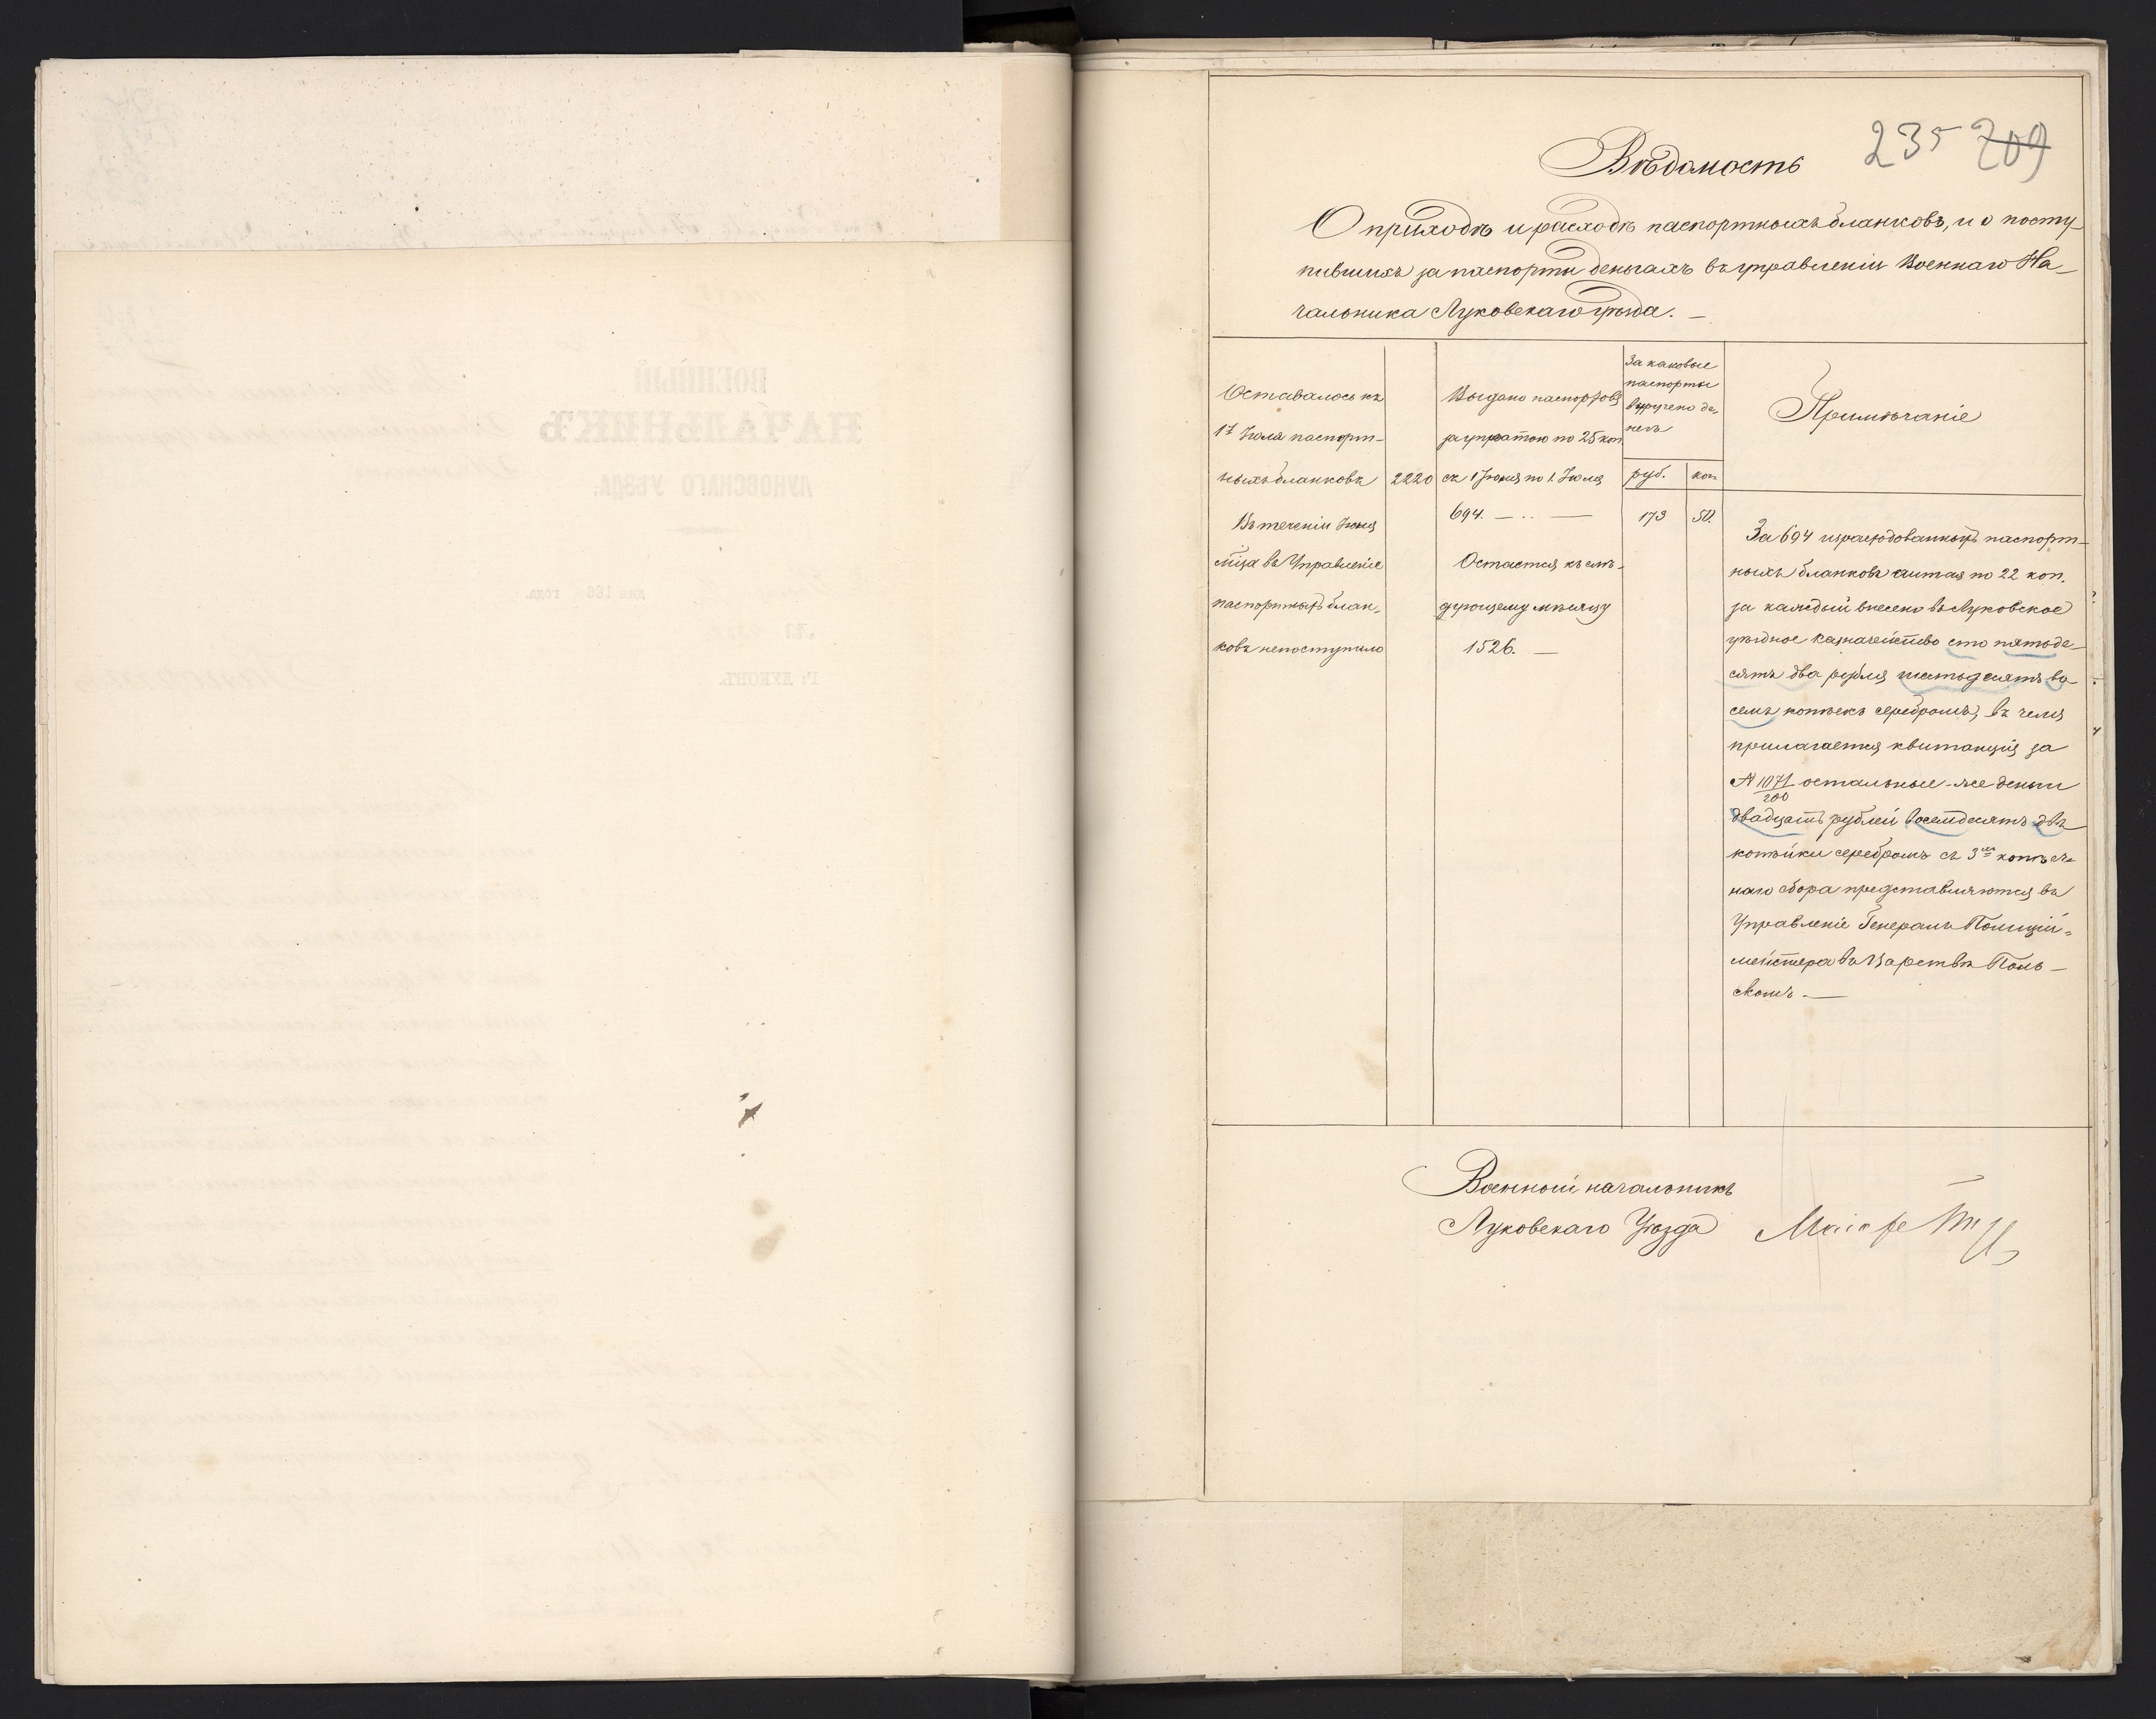 235 709
Вѣдомость
О приходѣ и расходѣ паспортныхъ бланковъ, и о посту-
пившихъ за паспорты деньгахъ въ управленіи Военнаго На-
чальника Луковскаго уѣзда. —
Оставалось къ
1му Іюля паспорт-
ныхъ бланковъ 2220
Въ теченіи Іюня
мѣца въ Управленіе
паспортныхъ блан-
ковъ непоступило
Выдано паспортовъ
за уплатою по 25 коп.
съ 1 Іюня по 1. Іюля
694. — .. —
Остается къ слѣ-
дующему мѣсяцу
1526. —
За каковые
паспорты
выручено де-
негъ
руб. коп
173 50.
Примѣчаніе
За 694 израсходованныхъ паспорт-
ныхъ бланковъ считая по 22 коп.
за каждый внесено въ Луковское
уѣздное казначейство сто пятьде-
сятъ два рубля шестьдесятъ во
семь копѣекъ серебромъ, въ чемъ
прилагается квитанція за
№ 1071/200 остальные-же деньги
двадцать рублей восемдесятъ двѣ
копѣйки серебромъ съ 3хъ копѣеч-
наго сбора представляются въ
Управленіе Генералъ Полиціи-
мейстера въ Царствѣ Поль-
скомъ —
Военный начальникъ
Луковскаго Уѣзда Маіоръ
ВОЕННЫЙ
НАЧАЛЬНИКЪ
ЛУКОВСКАГО УѢЗДА.
дня 186 года.
№
Г: ЛУКОВЪ.